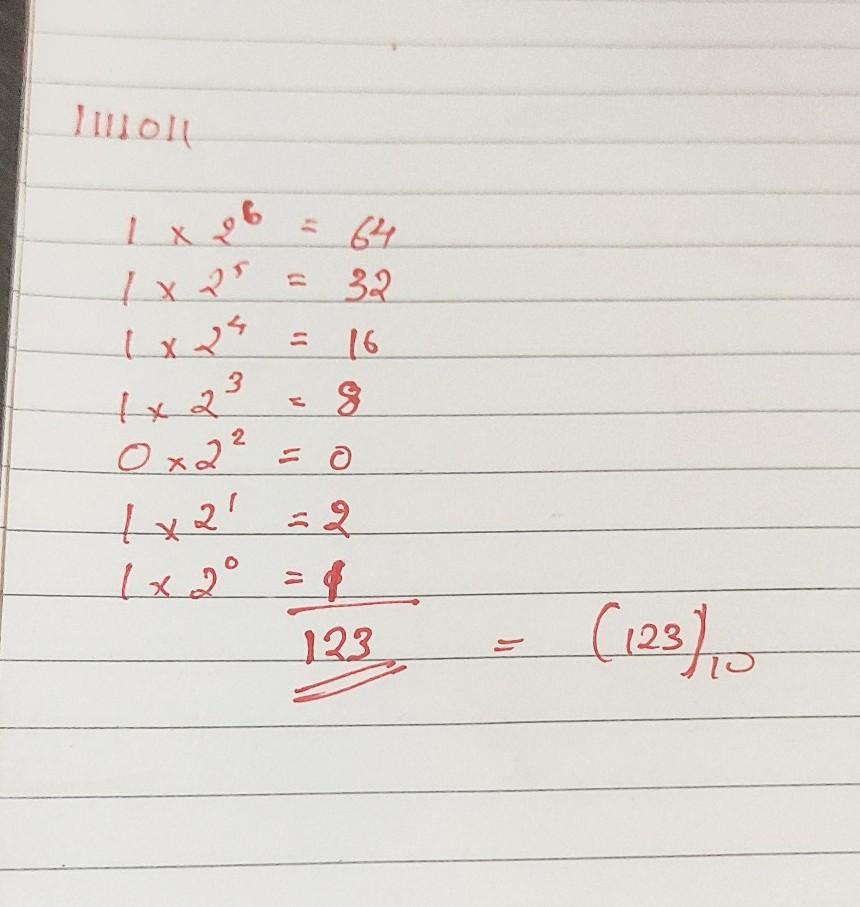 1111011
1 × 2⁶ = 64
1 × 2⁵ = 32
1 × 2⁴ = 16
1 × 2³ = 8
0 × 2² = 0
1 × 2¹ = 2
1 × 2⁰ = 1
123 = (123)₁₀